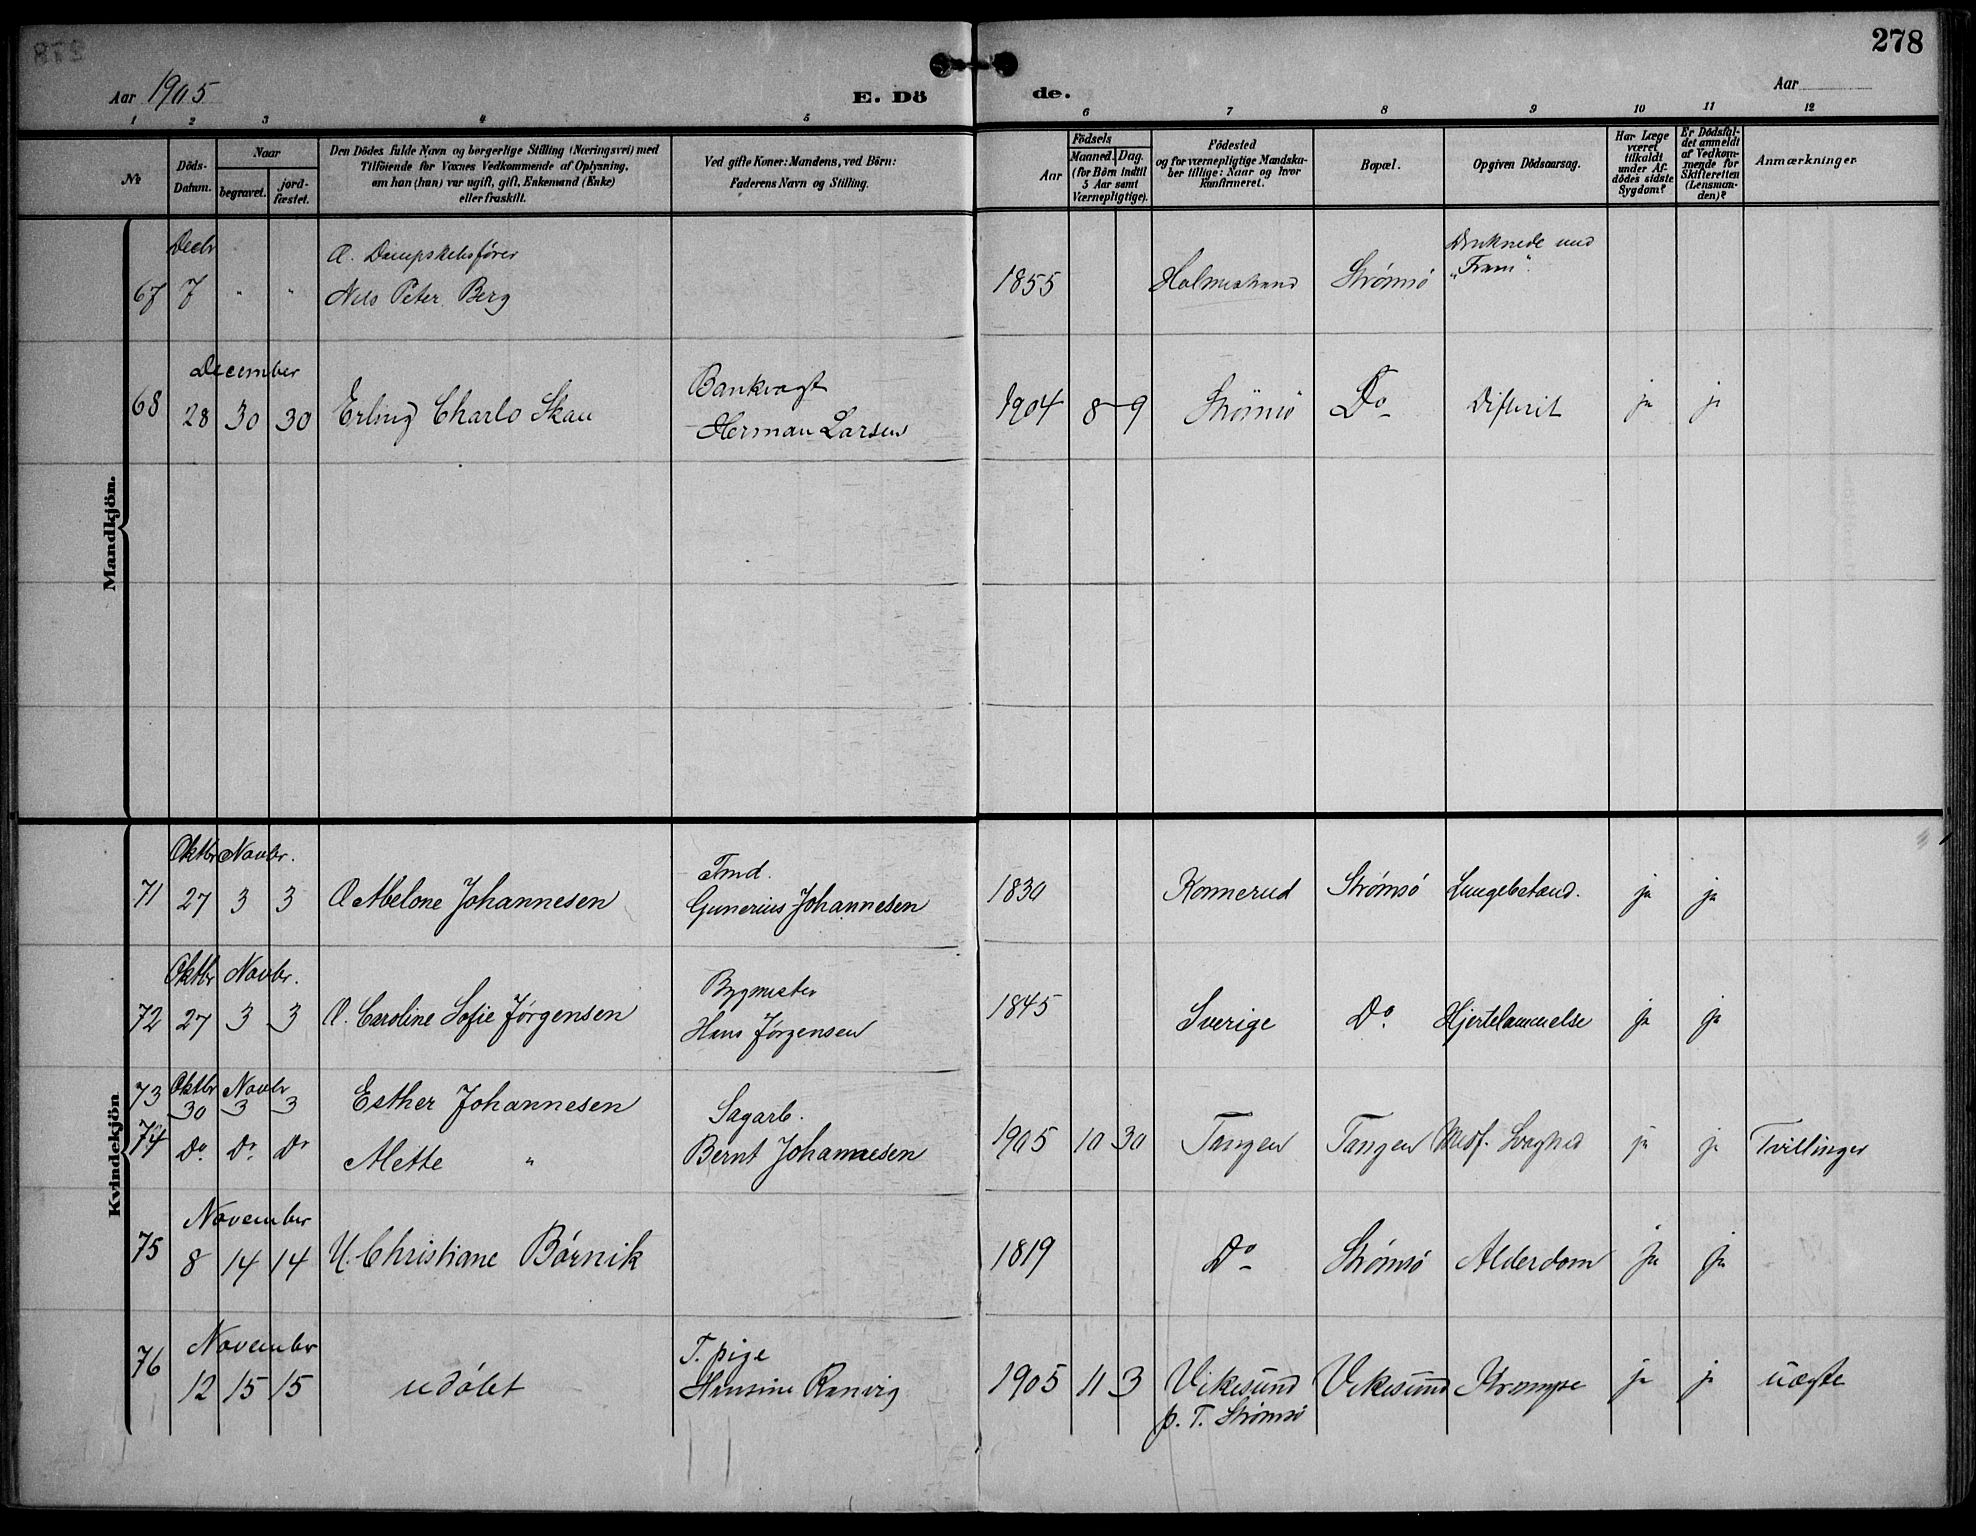 278
Aar 1905
E. Dö
de.
Aar
1 2 3 4 5 6 7 8 9 10 11 12
№
Döds-
Datum.
Naar
begravet.
jord-
fæstet.
Den Dödes fulde Navn og borgerlige Stilling (Næringsvei) med
Tilföiende for Voxnes Vedkommende af Oplysning,
om han (hun) var ugift, gift, Enkemand (Enke)
eller fraskilt.
Ved gifte Koner: Mandens, ved Börn:
Faderens Navn og Stilling.
Aar
Födsels
Maaned. Dag.
(for Börn indtil
5 Aar samt
Værnepligtige).
Födested
og for værnepligtige Mandska-
ber tillige: Naar og hvor
konfirmeret.
Bopæl.
Opgiven Dödsaarsag.
Har Læge
været
tilkaldt
under Af-
dödes sidste
Sygdom?
Er Dödsfal-
det anmeldt
af Vedkom-
mende for
Skifteretten
(Lensman-
den)?
Anmærkninger
Mandkjön.
Decbr
67 7 " "
Dampskibsfører
Nils Peter Berg
1855
Holmestrand
Strømsø
Druknede med
"Fram".
December
68 28 30 30 Erling Charlo Skau
Bankvagt
Herman Larsen
1904 8 9 Strömsö Do Difterit ja ja
Kvindekjön
Oktbr Novbr.
71 27 3 3 Abelone Johannesen
Tmd.
Gunerius Johannesen
1830 Konnerud Strømsø Lungebetænd. ja ja
Oktbr Novbr.
72 27 3 3 Caroline Sofie Jørgensen
Bygmester
Hans Jørgensen
1845 Sverige Do Hjertelammelse ja ja
Oktbr Novbr
73 30 3 3 Esther Johannesen
74 Do Do Do Mette "
Sagarb.
Bernt Johannesen
1905 10 30 Tangen Tangen Medf. Svaghed ja ja Tvillinger
November
75 8 14 14 U. Christiane Börnik
1819 Do Strømsø Alderdom ja ja
November
76 12 15 15 udøbt
T. pige
Hansine Ranvig
1905 11 3 Vikesund
p. T. Strømsø
Vikesund Krampe ja ja uægte